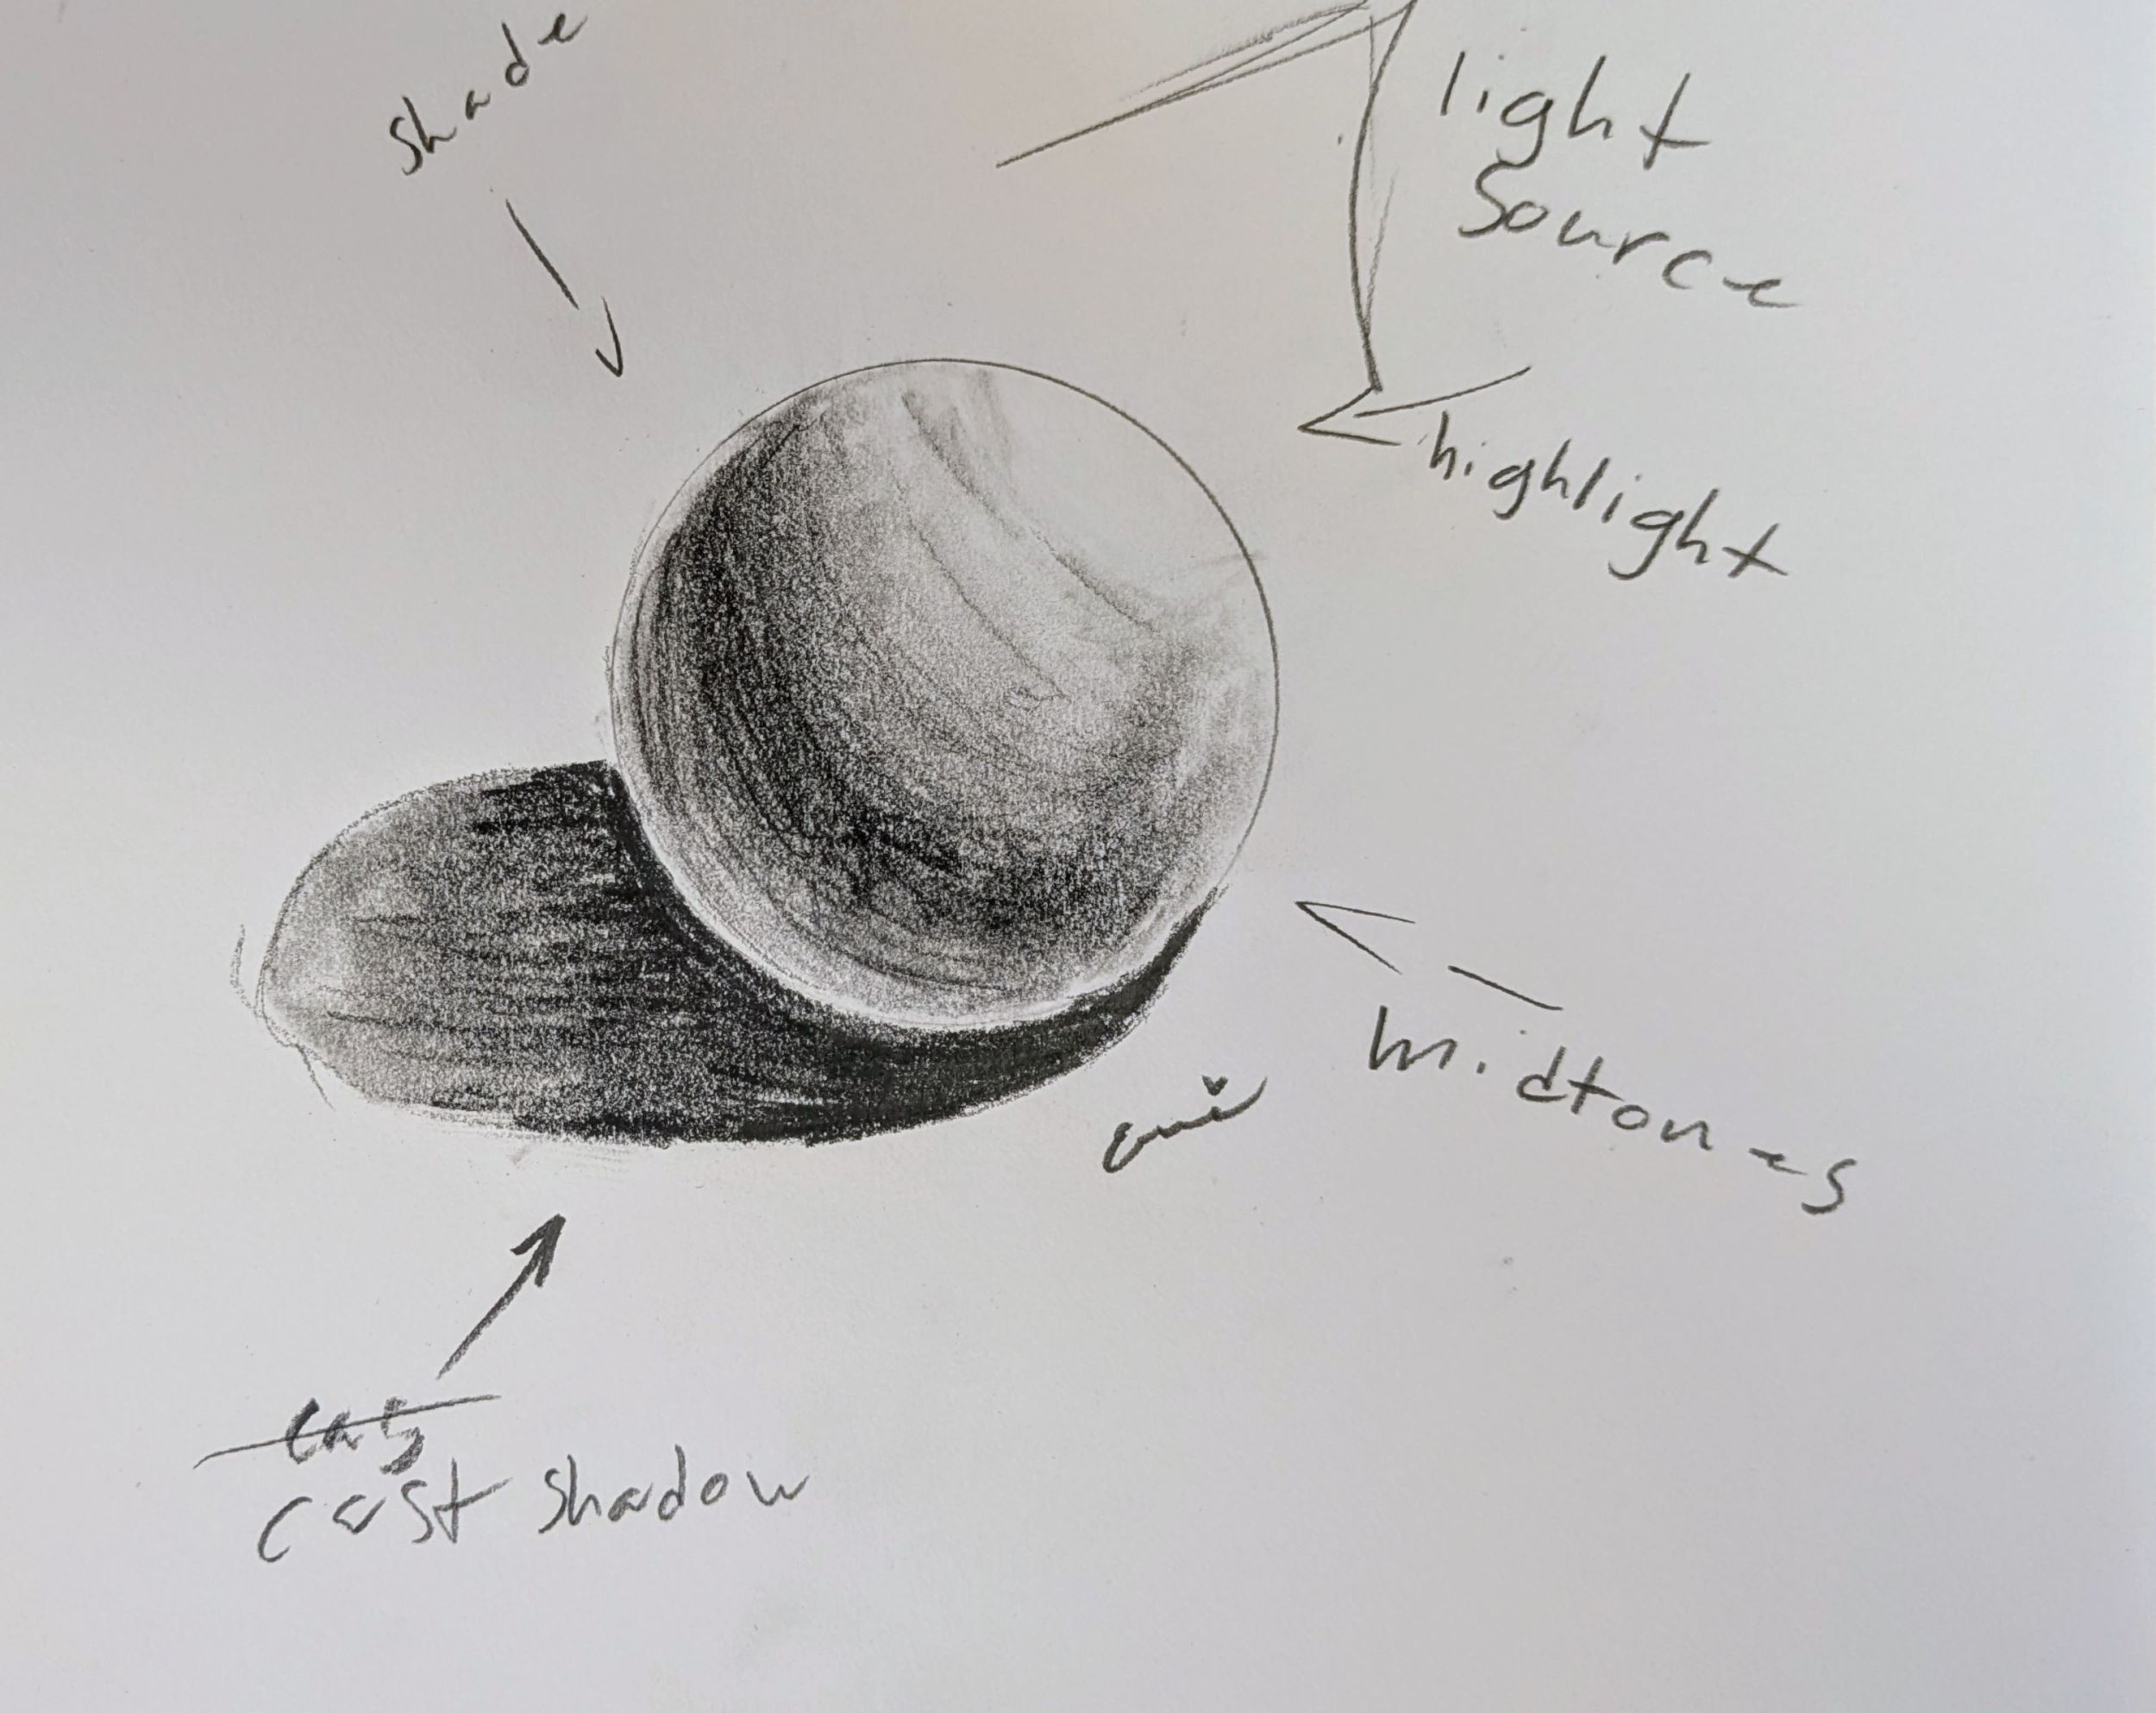 shade
light
source
highlight
midtones
cast shadow